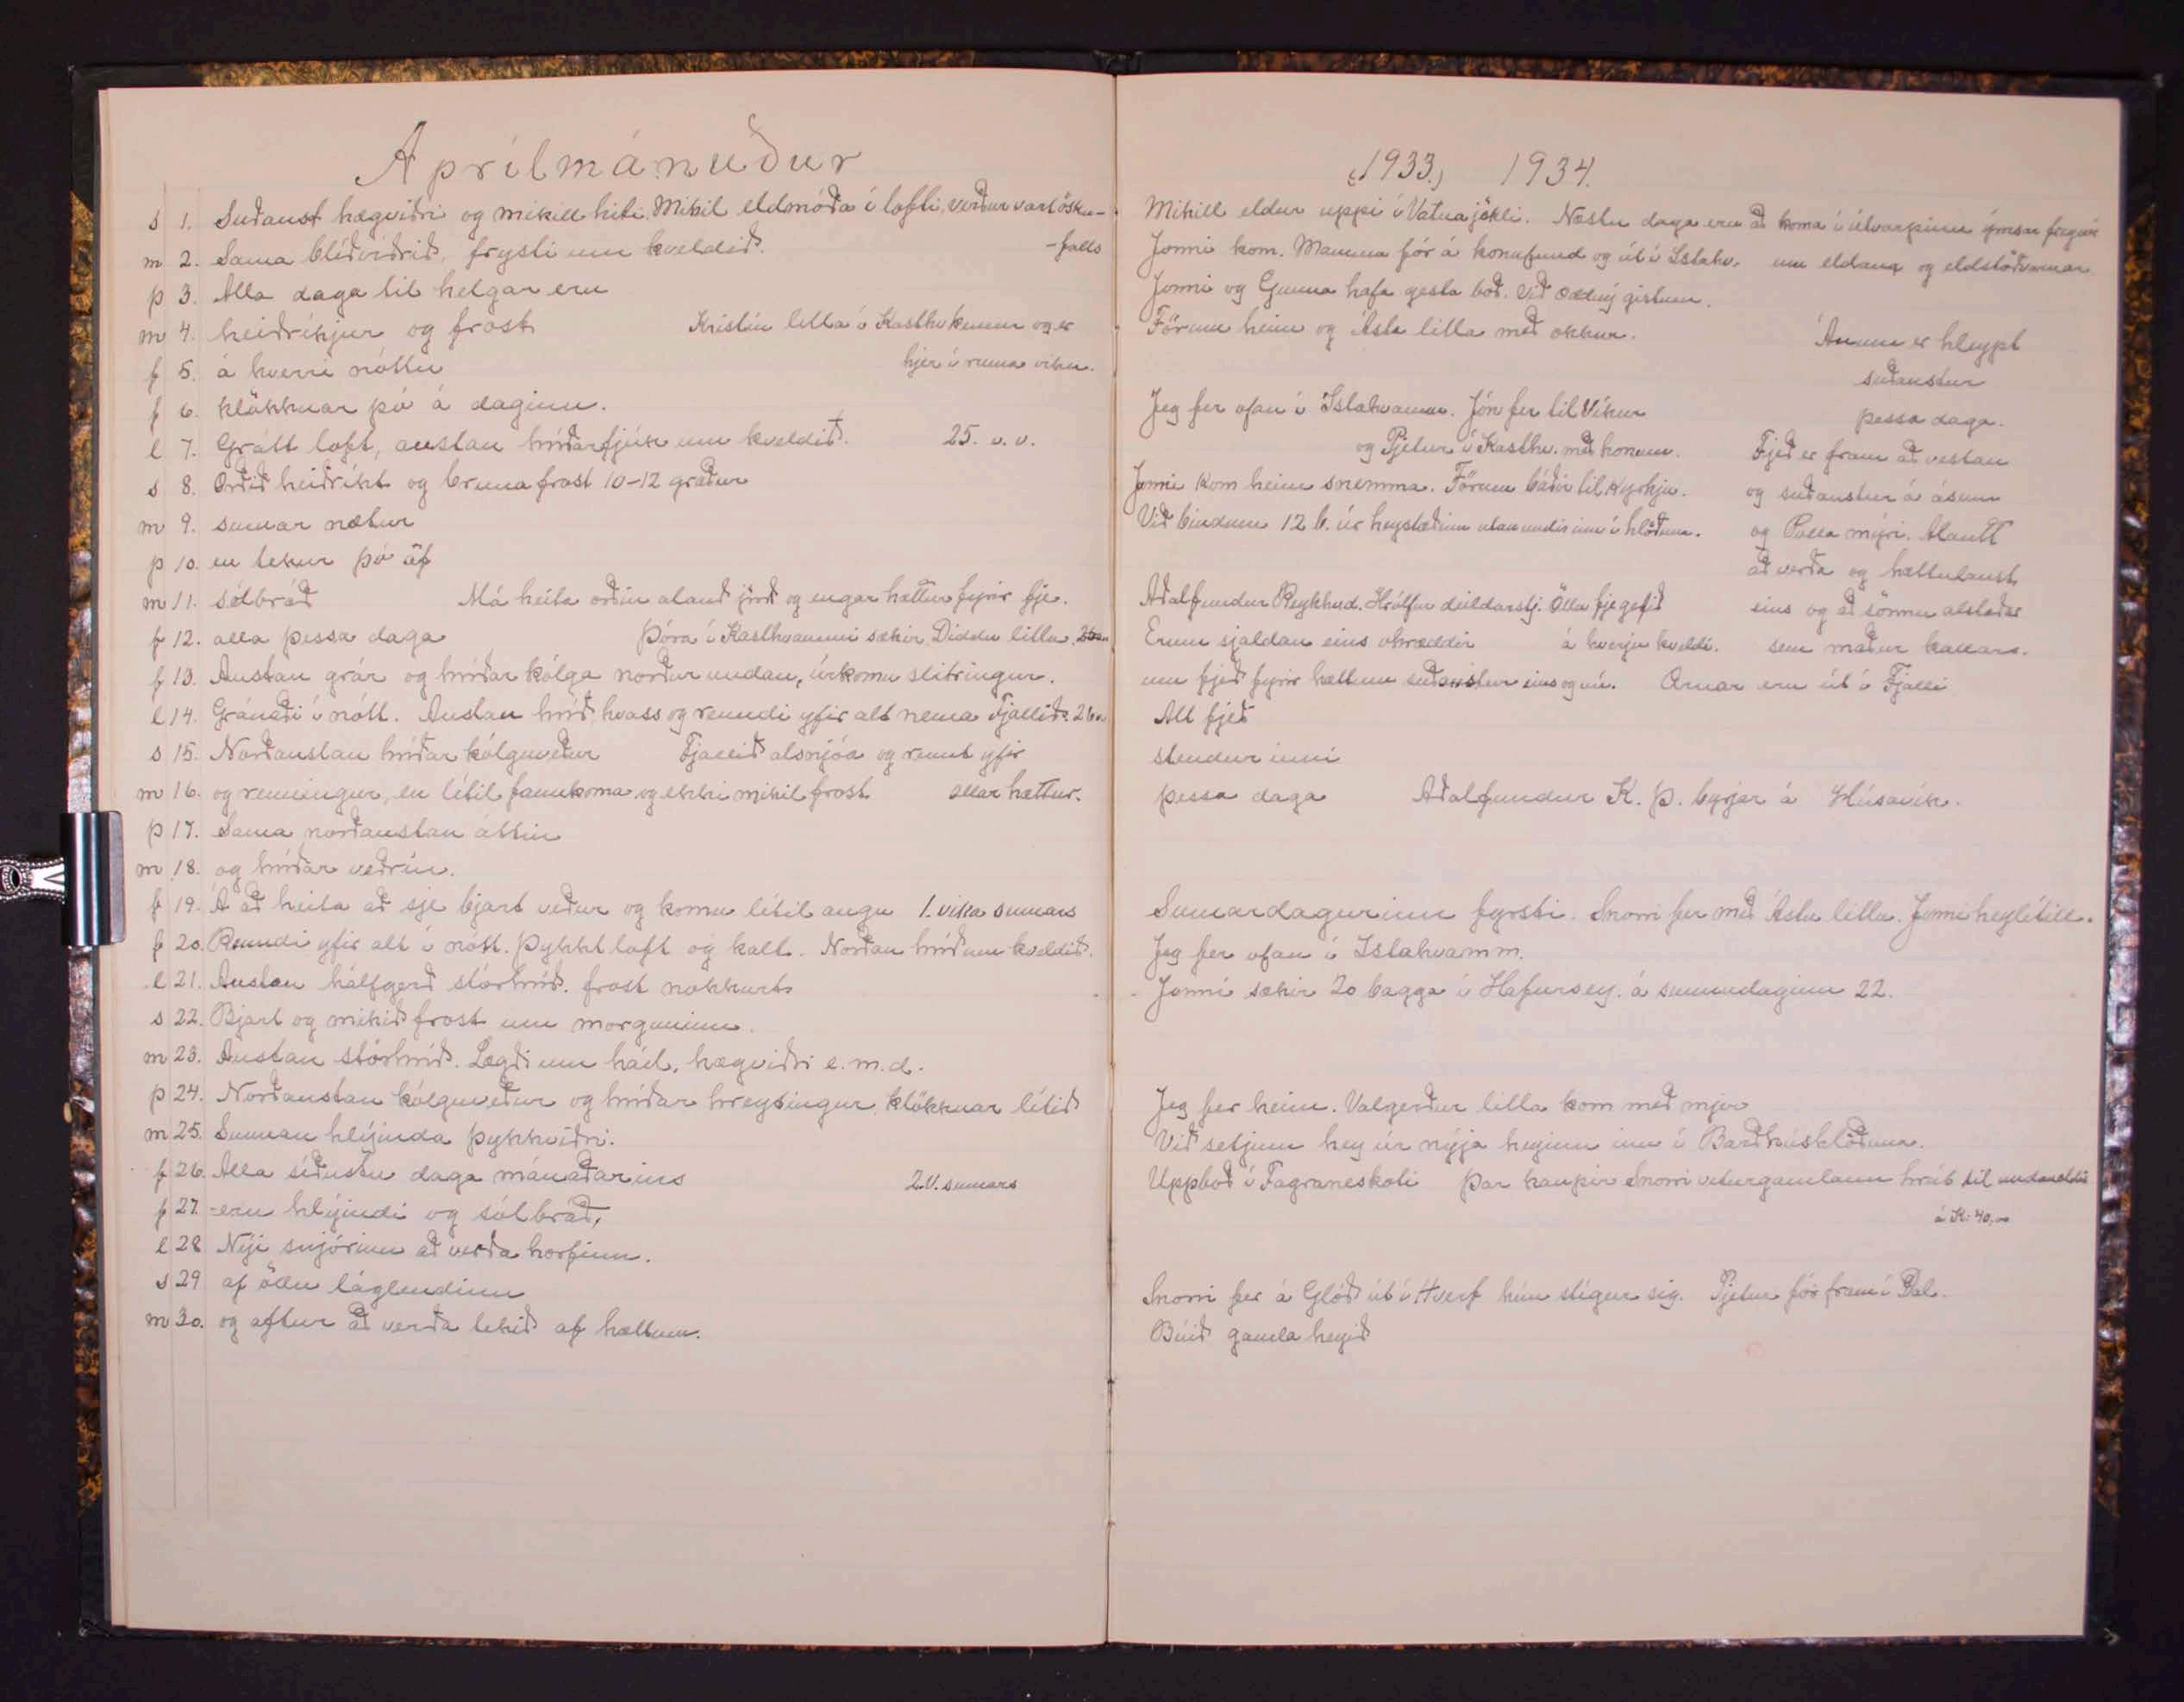 Aprílmánuður
s 1. Suðaust hægviðri og mikill hiti. Mikil eldmóða í lofti, verður vart ösku-
-falls
m 2. Sama blíðviðrið, frysti um kveldið.
þ 3. Alla daga til helgar eru
m 4. heiðríkjur og frost Kristín litla í Kasthv kemur og er
f 5. á hverri nóttu hjer í ruma viku.
f 6. klökknar þó á daginn.
l 7. Grátt loft, austan hríðarfjúk um kveldið. 25. v. v.
s 8. Orðið heiðríkt og bruna frost 10-12 gráður
m 9. sumar nætur
þ 10. en tekur þó af
m 11. sólbráð Má heita orðin alauð jörð og engar hættur fyrir fje.
f 12. alla þessa daga Þóra í Kasthvammi sækir Diddu litlu.
f 13. Austan grár og hríðar kólga norður undan, úrkomu slitringur.
l 14. Gránaði í nótt. Austan hríð, hvass og renndi yfir alt nema Fjallið. 26 v
s 15. Norðaustan hríðar kólguveður Fjallið alsnjóa og rennt yfir
m 16. og renningur, en lítil fannkoma og ekki mikil frost allar hættur.
þ 17. Sama norðaustan áttin
m 18. og hríðar veðrin.
f 19. Á að heita að sje bjart veður og komu lítil augu 1. vika sumars
f 20. Renndi yfir alt í nótt. Þykkt loft og kalt. Norðan hríð um kveldið.
l 21. Austan hálfgerð stórhríð. frost nokkurt
s 22. Bjart og mikið frost um morguninn.
m 23. Austan stórhríð. Lægði um hád, hægviðri e.m.d.
þ 24. Norðaustan kólguveður og hríðar hreytingur, klökknar lítið
m 25. Sunnan hlýinda þykkviðri.
f 26. Alla síðustu daga mánaðarins 2.V. sumars
f 27. eru hlýindi og sólbráð,
l 28 Nýi snjórinn að verða horfinn.
s 29 af öllu láglendinu
m 30. og aftur að verða tekið af hættum.
(1933.) 1934.
Mikill eldur uppi í Vatnajökli. Næstu daga eru að koma í útvarpinu ýmsar fregnir
Jonni kom. Mamma fór á konufund og út í Íslahv. um eldana og eldstöðvarnar
Jonni og Gunna hafa gesta boð. Við gistum.
Förum heim og Ásta litla með okkur. Ánum er hleypt
suðaustur
Jeg fer ofan í Íslahvamm. Jón fer til Víkur þessa daga.
og Pjetur í Kasthv. með honum. Fjeð er fram að vestan
Jonni kom heim snemma. Förum báðir til Kyrkju. og suðaustur á ásum
Við bindum 12 b. úr heystæðinu utan undir inn í hlöðuna. og Palla mýri. Alautt
að verða og hættulaust
Aðalfundur Reykhvd. Hrólfur deildarstj. Öllu fje gefið eins og að sönnu alstaðar
Erum sjaldan eins ohræddir á hverju kveldi. sem maður kallar.
um fjeð fyrir hættum suðaustur eins og nú. Ærnar eru út í Fjalli
Alt fjeð
stendur inni
þessa daga Aðalfundur K. Þ. byrjar á Húsavík.
Sumardagurinn fyrsti. Snorri fer með Ástu litlu. Jonni heylítill.
Jeg fer ofan í Íslahvamm.
Jonni sækir 20 bagga í Hafursey. á sunnudaginn 22.
Jeg fer heim. Valgerður litla kom með mjer
Við setjum hey úr nýja heyinu inn í Barðhúshlöðuna.
Uppboð í Fagraneskoti Þar kaupir Snorri veturgamlann hrút til undaneldis
á K. 40,00
Snorri fer á Glóð út í Hverf hún stígur sig. Pjetur fór fram í Dal.
Búið gamla heyið